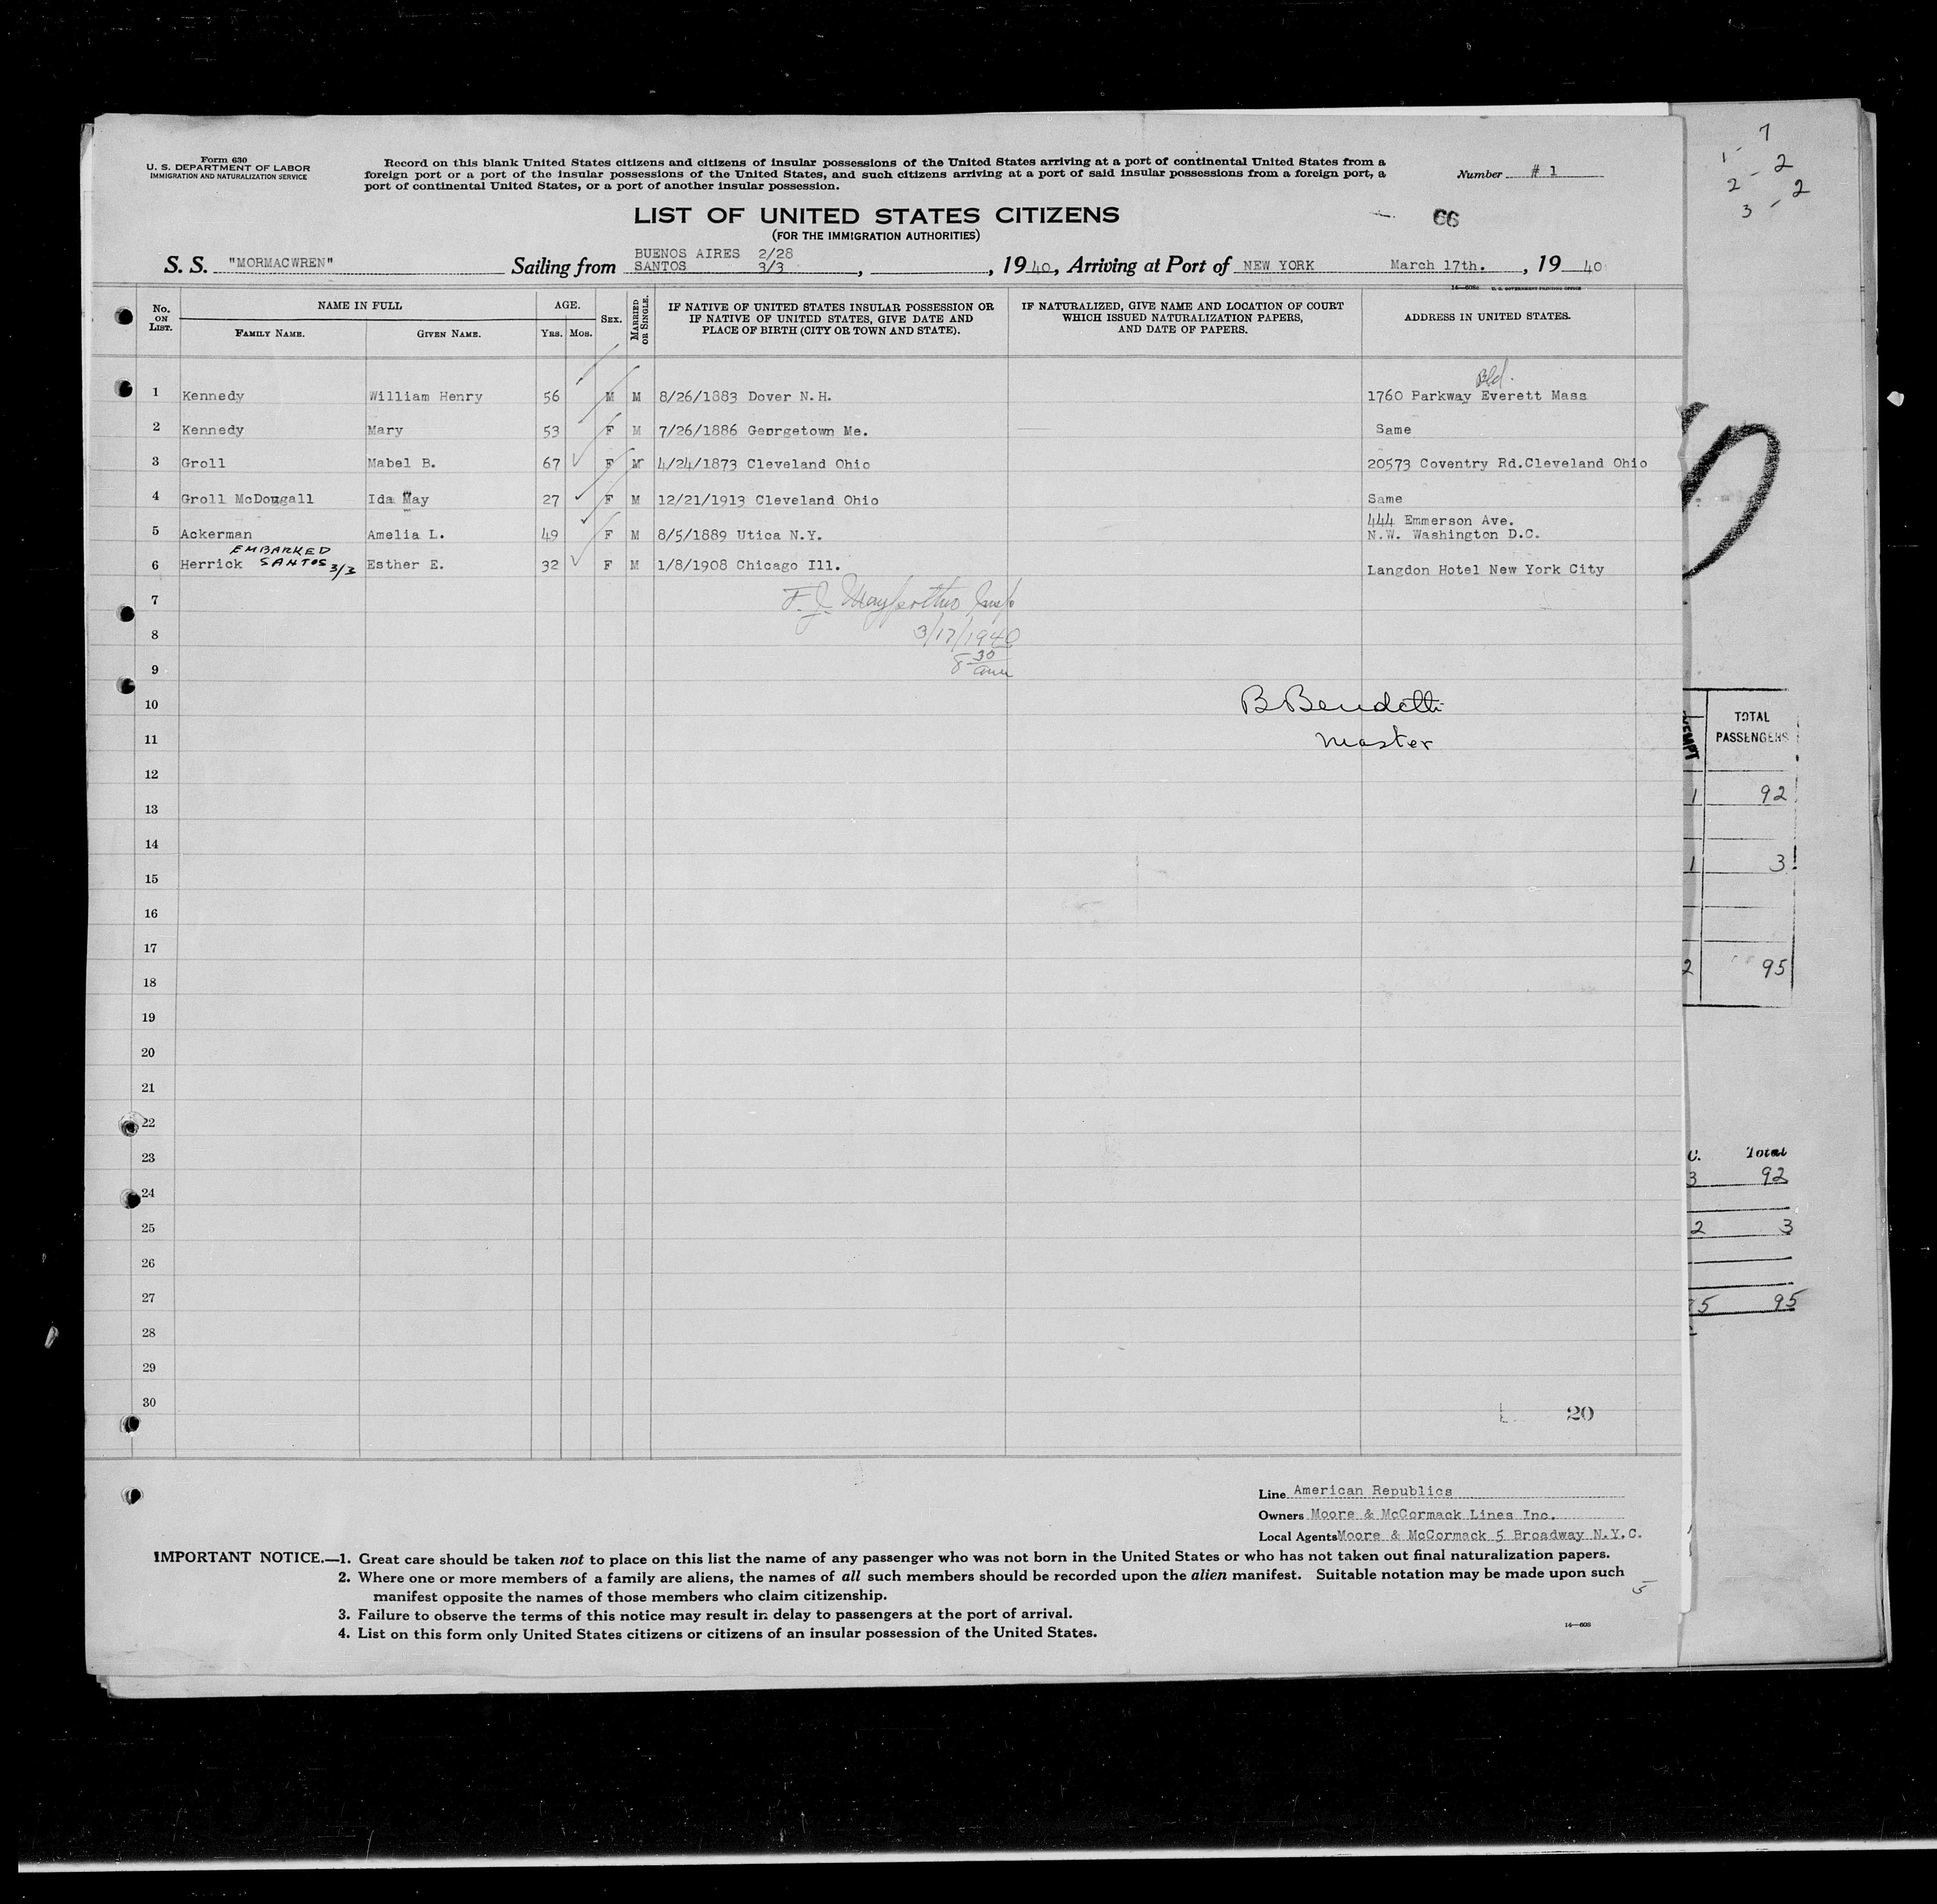 Form 630
U. S. DEPARTMENT OF LABOR
IMMIGRATION AND NATURALIZATION SERVICE
Record on this blank United States citizens and citizens of insular possessions of the United States arriving at a port of continental United States from a
foreign port or a port of the insular possessions of the United States, and such citizens arriving at a port of said insular possessions from a foreign port, a
port of continental United States, or a port of another insular possession.
Number # 1
LIST OF UNITED STATES CITIZENS
66
(FOR THE IMMIGRATION AUTHORITIES)
S. S. "MORMACWREN" Sailing from BUENOS AIRES 2/28
SANTOS 3/3 , , 1940, Arriving at Port of NEW YORK March 17th. , 19 40
No. ON LIST. NAME IN FULL AGE. SEX. MARRIED OR SINGLE. IF NATIVE OF UNITED STATES INSULAR POSSESSION OR IF NATIVE OF UNITED STATES, GIVE DATE AND PLACE OF BIRTH (CITY OR TOWN AND STATE). IF NATURALIZED, GIVE NAME AND LOCATION OF COURT WHICH ISSUED NATURALIZATION PAPERS, AND DATE OF PAPERS. ADDRESS IN UNITED STATES.
FAMILY NAME. GIVEN NAME. YRS. MOS.
Bld.
1 Kennedy William Henry 56 M M 8/26/1883 Dover N.H. 1760 Parkway Everett Mass
2 Kennedy Mary 53 F M 7/26/1886 Georgetown Me. Same
3 Groll Mabel B. 67 F M 4/24/1873 Cleveland Ohio 20573 Coventry Rd.Cleveland Ohio
4 Groll McDougall Ida May 27 F M 12/21/1913 Cleveland Ohio Same
5 Ackerman Amelia L. 49 F M 8/5/1889 Utica N.Y. 444 Emmerson Ave.
N.W. Washington D.C.
EMBARKED
6 Herrick SANTOS 3/3 Esther E. 32 F M 1/8/1908 Chicago Ill. Langdon Hotel New York City
7 F. J.
8 3/17/1940
9 8 30 am
10 B Bendetti
11 Master
12
13
14
15
16
17
18
19
20
21
22
23
24
25
26
27
28
29
30
20
Line American Republics
Owners Moore & McCormack Lines Inc.
Local Agents Moore & McCormack 5 Broadway N.Y.C.
IMPORTANT NOTICE.—1. Great care should be taken not to place on this list the name of any passenger who was not born in the United States or who has not taken out final naturalization papers.
2. Where one or more members of a family are aliens, the names of all such members should be recorded upon the alien manifest. Suitable notation may be made upon such
manifest opposite the names of those members who claim citizenship.
3. Failure to observe the terms of this notice may result in delay to passengers at the port of arrival.
4. List on this form only United States citizens or citizens of an insular possession of the United States.
14—608
5
7
1 - 2
2 - 2
3 -
TOTAL
PASSENGERS
1 92
1 3
2 95
C. Total
3 92
2 3
95